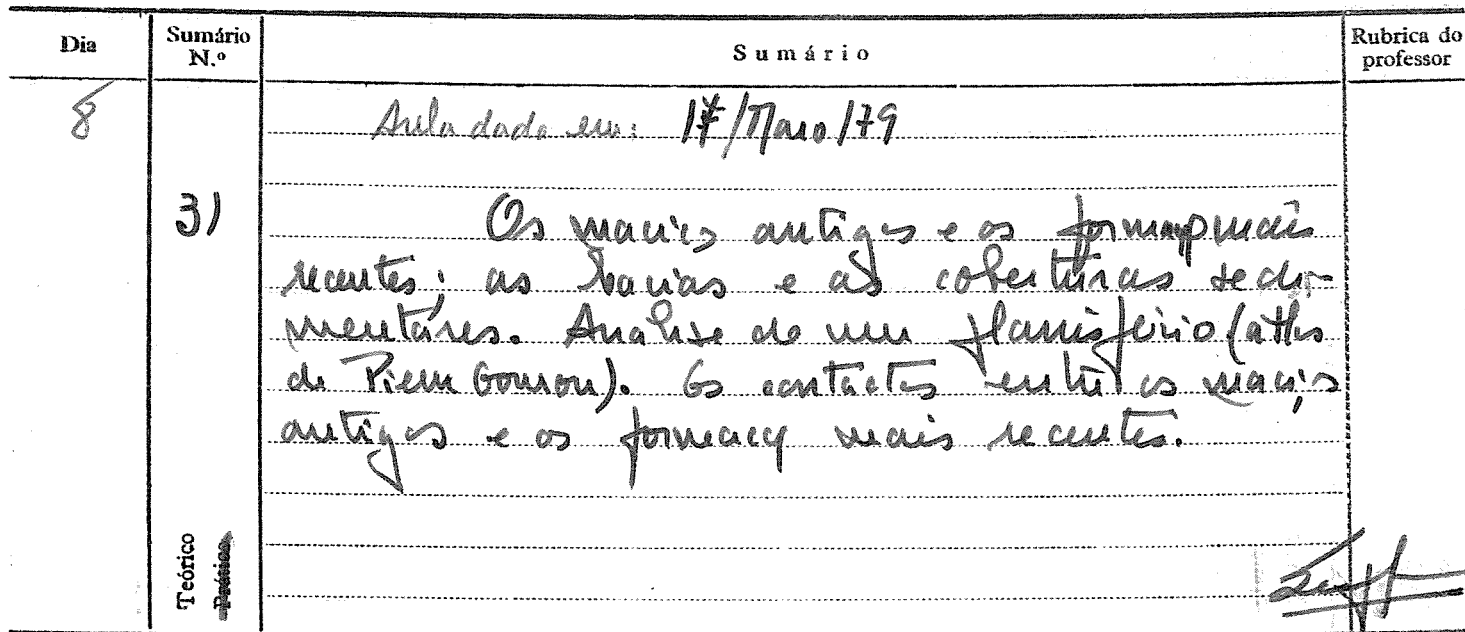 Dia
Sumário N.º
Sumário
Rubrica do professor
8
Aula dada em: 17/Maio/79
31
Os maciços antigos e as formações mais
recentes; as bacias e as coberturas sedi-
mentares. Análise de um planisfério (atlas
de Pierre Gourou). Os contactos entre os maciços
antigos e as formações mais recentes.
Teórico
Prático